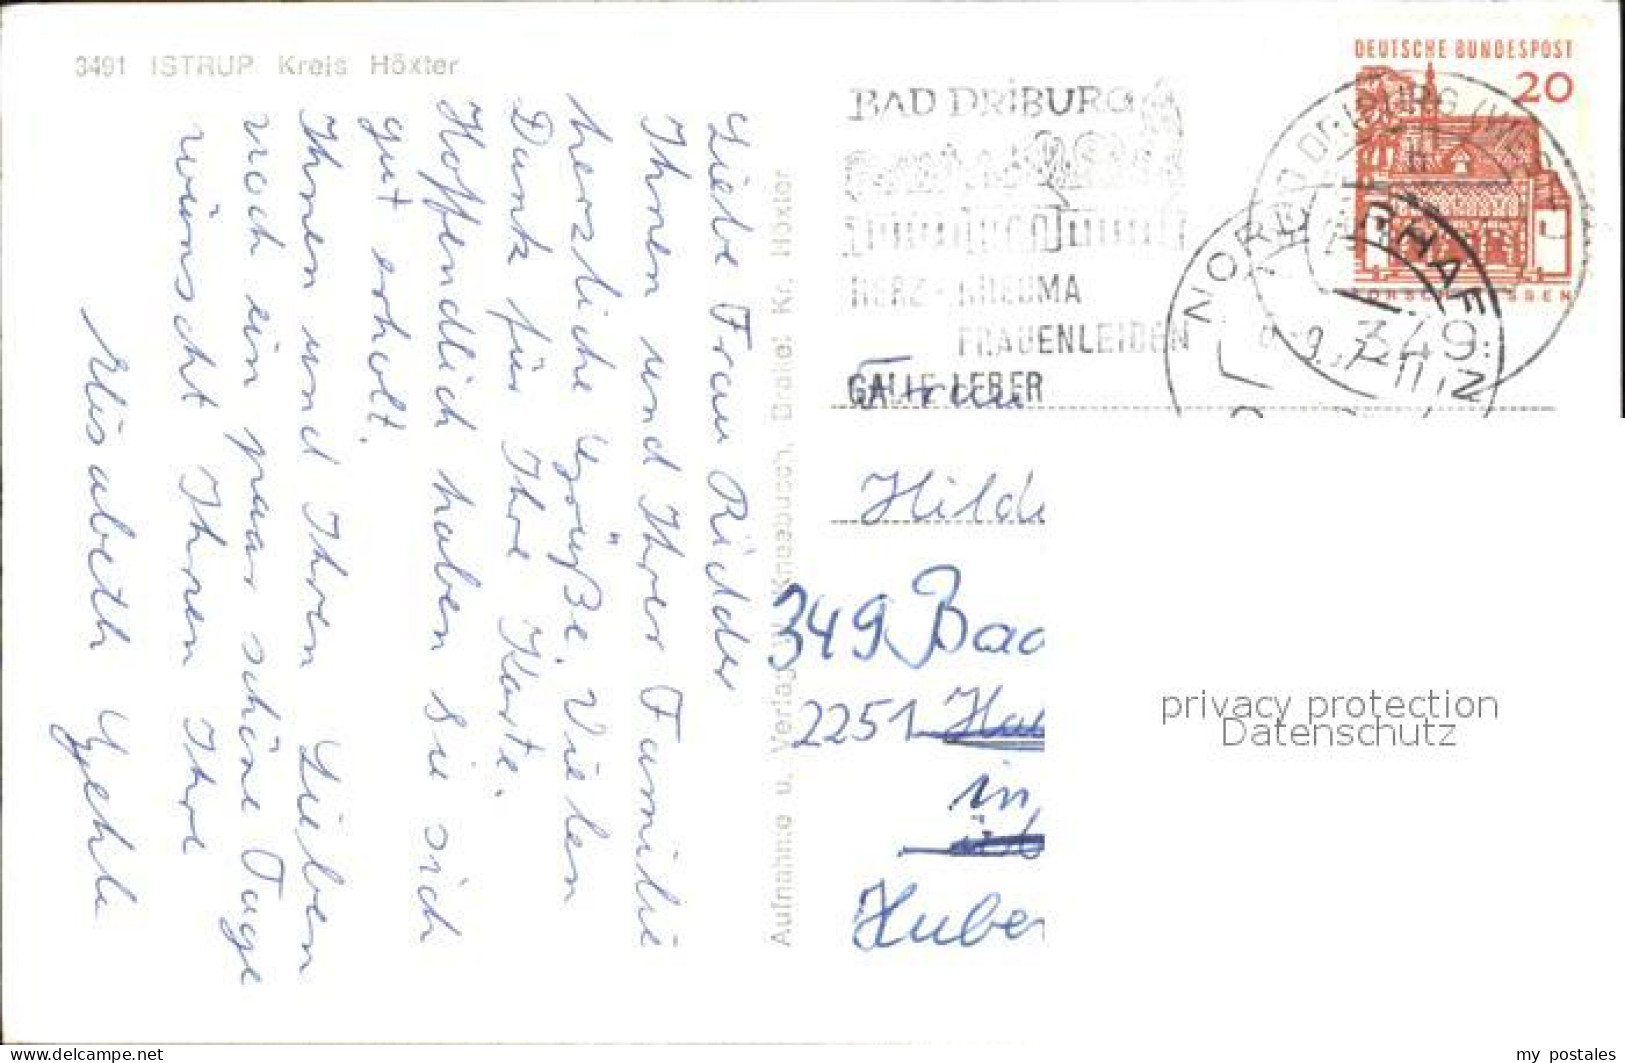 3491 ISTRUP Kreis Höxter
Liebe Frau Rüdder
Ihnen und Ihrer Familie
herzliche Grüße. Vielen
Dank für Ihre Karte.
Hoffendlich haben Sie sich
gut erholt.
Ihnen und Ihren Lieben
noch ein paar schöne Tage
wünscht Ihnen Ihre
Elisabeth Gehle
Aufnahme u. Verlag W. Kneebusch, Brakel Kr. Höxter
BAD DRIBURG
HERZ - RHEUMA
FRAUENLEIDEN
GALLE-LEBER
DEUTSCHE BUNDESPOST
20
LORSCH HESSEN
BAD DRIBURG (WESTF)
349
NORDERHAFEN
Frau
Hilde
349 Bad
2251
in
Huber
privacy protection
Datenschutz
www.delcampe.net
my_postales